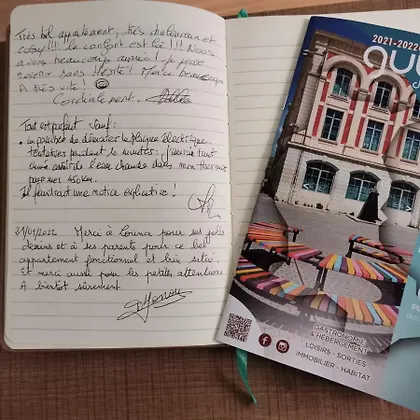 Très bel appartement, très chaleureux et
cosy!!! le confort est là!!! Nous
avons beaucoup aimé! Je peux
revenir sans hésité! Merci beaucoup
A très vite!
Cordialement.
Tout est parfait sauf:
- la plaque électrique
tentatives pendant 10 minutes
de l'eau chaude dans mon thermos
pour mes
Il faudrait une notice explicative!
21/01/2022 Merci à Louna pour ses jolis
dessins et à ses parents pour ce bel
appartement fonctionnel et bien situé.
Et merci aussi pour les petites attentions
A bientôt sûrement.
2021-2022
GASTRONOMIE
& HÉBERGEMENT
LOISIRS - SORTIES
IMMOBILIER - HABITAT